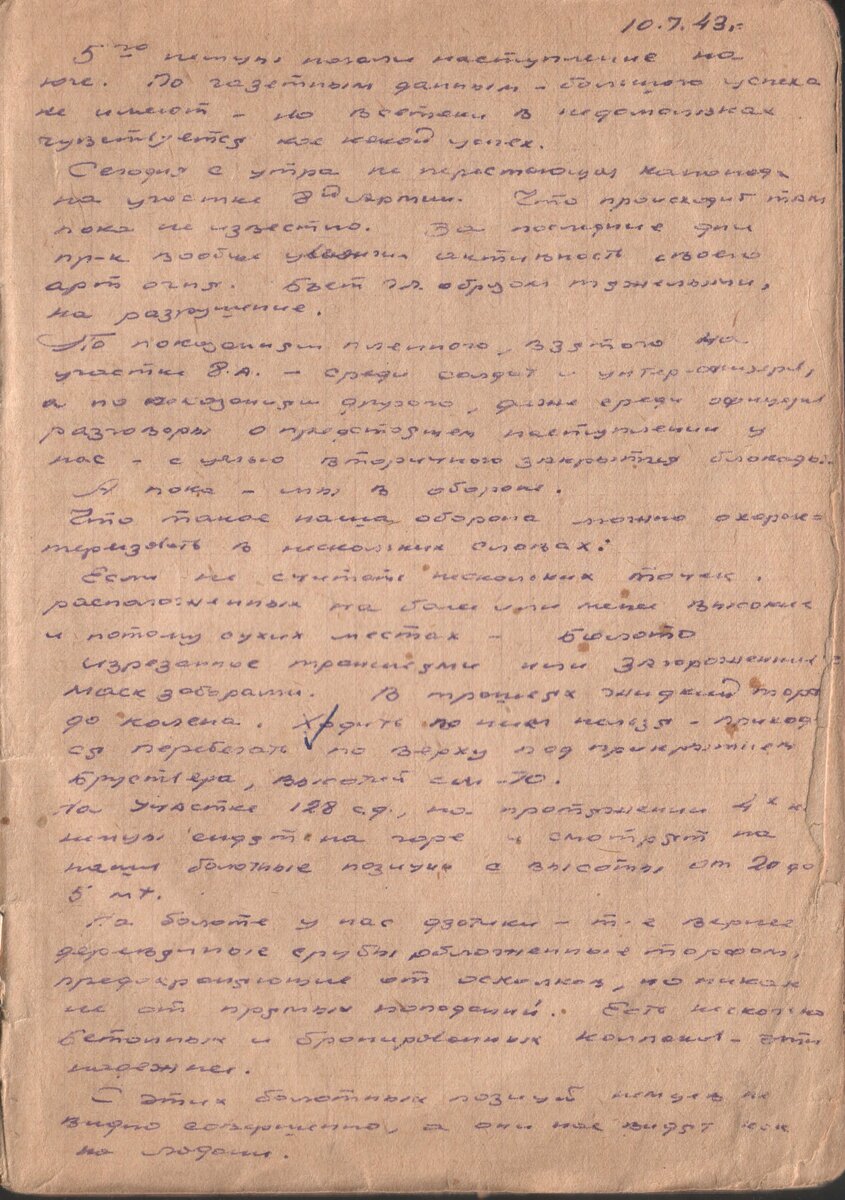 10.7.43.-
5го немцы начали наступление на
юге. По газетным данным - большого успеха
не имеют - но всетеки в недомолвках
чувствуется кое какой успех.
Сегодня с утра не перестающая канонад-
на участке 8ой Армии. Что происходит там
пока не известно. За последние дни
пр-к вообще увеличил активность своего
арт огня. Бьет гл образом тяжелыми,
на разрушение.
По показаниям пленного, взятого на
участке 8.А. - среди солдат и унтер-офицеров,
а по показаниям другого, даже среди офицеров
разговоры о предстоящем наступлении у
нас - с целью вторичного закрытия блокады.
А пока - мы в обороне.
Что такое наша оборона можно охарак-
теризовать в нескольких словах:
Если не считать нескольких точек,
расположенных на более или менее высоких
и потому сухих местах - Болото
изрезанное траншеями или загороженное
маск заборами. В траншеях жидкий торф
до колена. Ходить по ним нельзя - приход
ся перебегать по верху под прикрытием
бруствера, высотой см -70.
На участке 128 с.д., на протяжении 4х к
немцы сидят на горе и смотрят на
наши болотные позиции с высоты от 20 до
5 мт.
На болоте у нас дзотики - т-е вернее
деревянные срубы обложенные торфом,
предохраняющие от осколков, но никак
не от прямых попаданий. Есть несколько
бетонных и бронированных колпаков - эти
надежнее.
С этих болотных позиций немцев не
видно совершенно, а они нас видят как
на ладони.